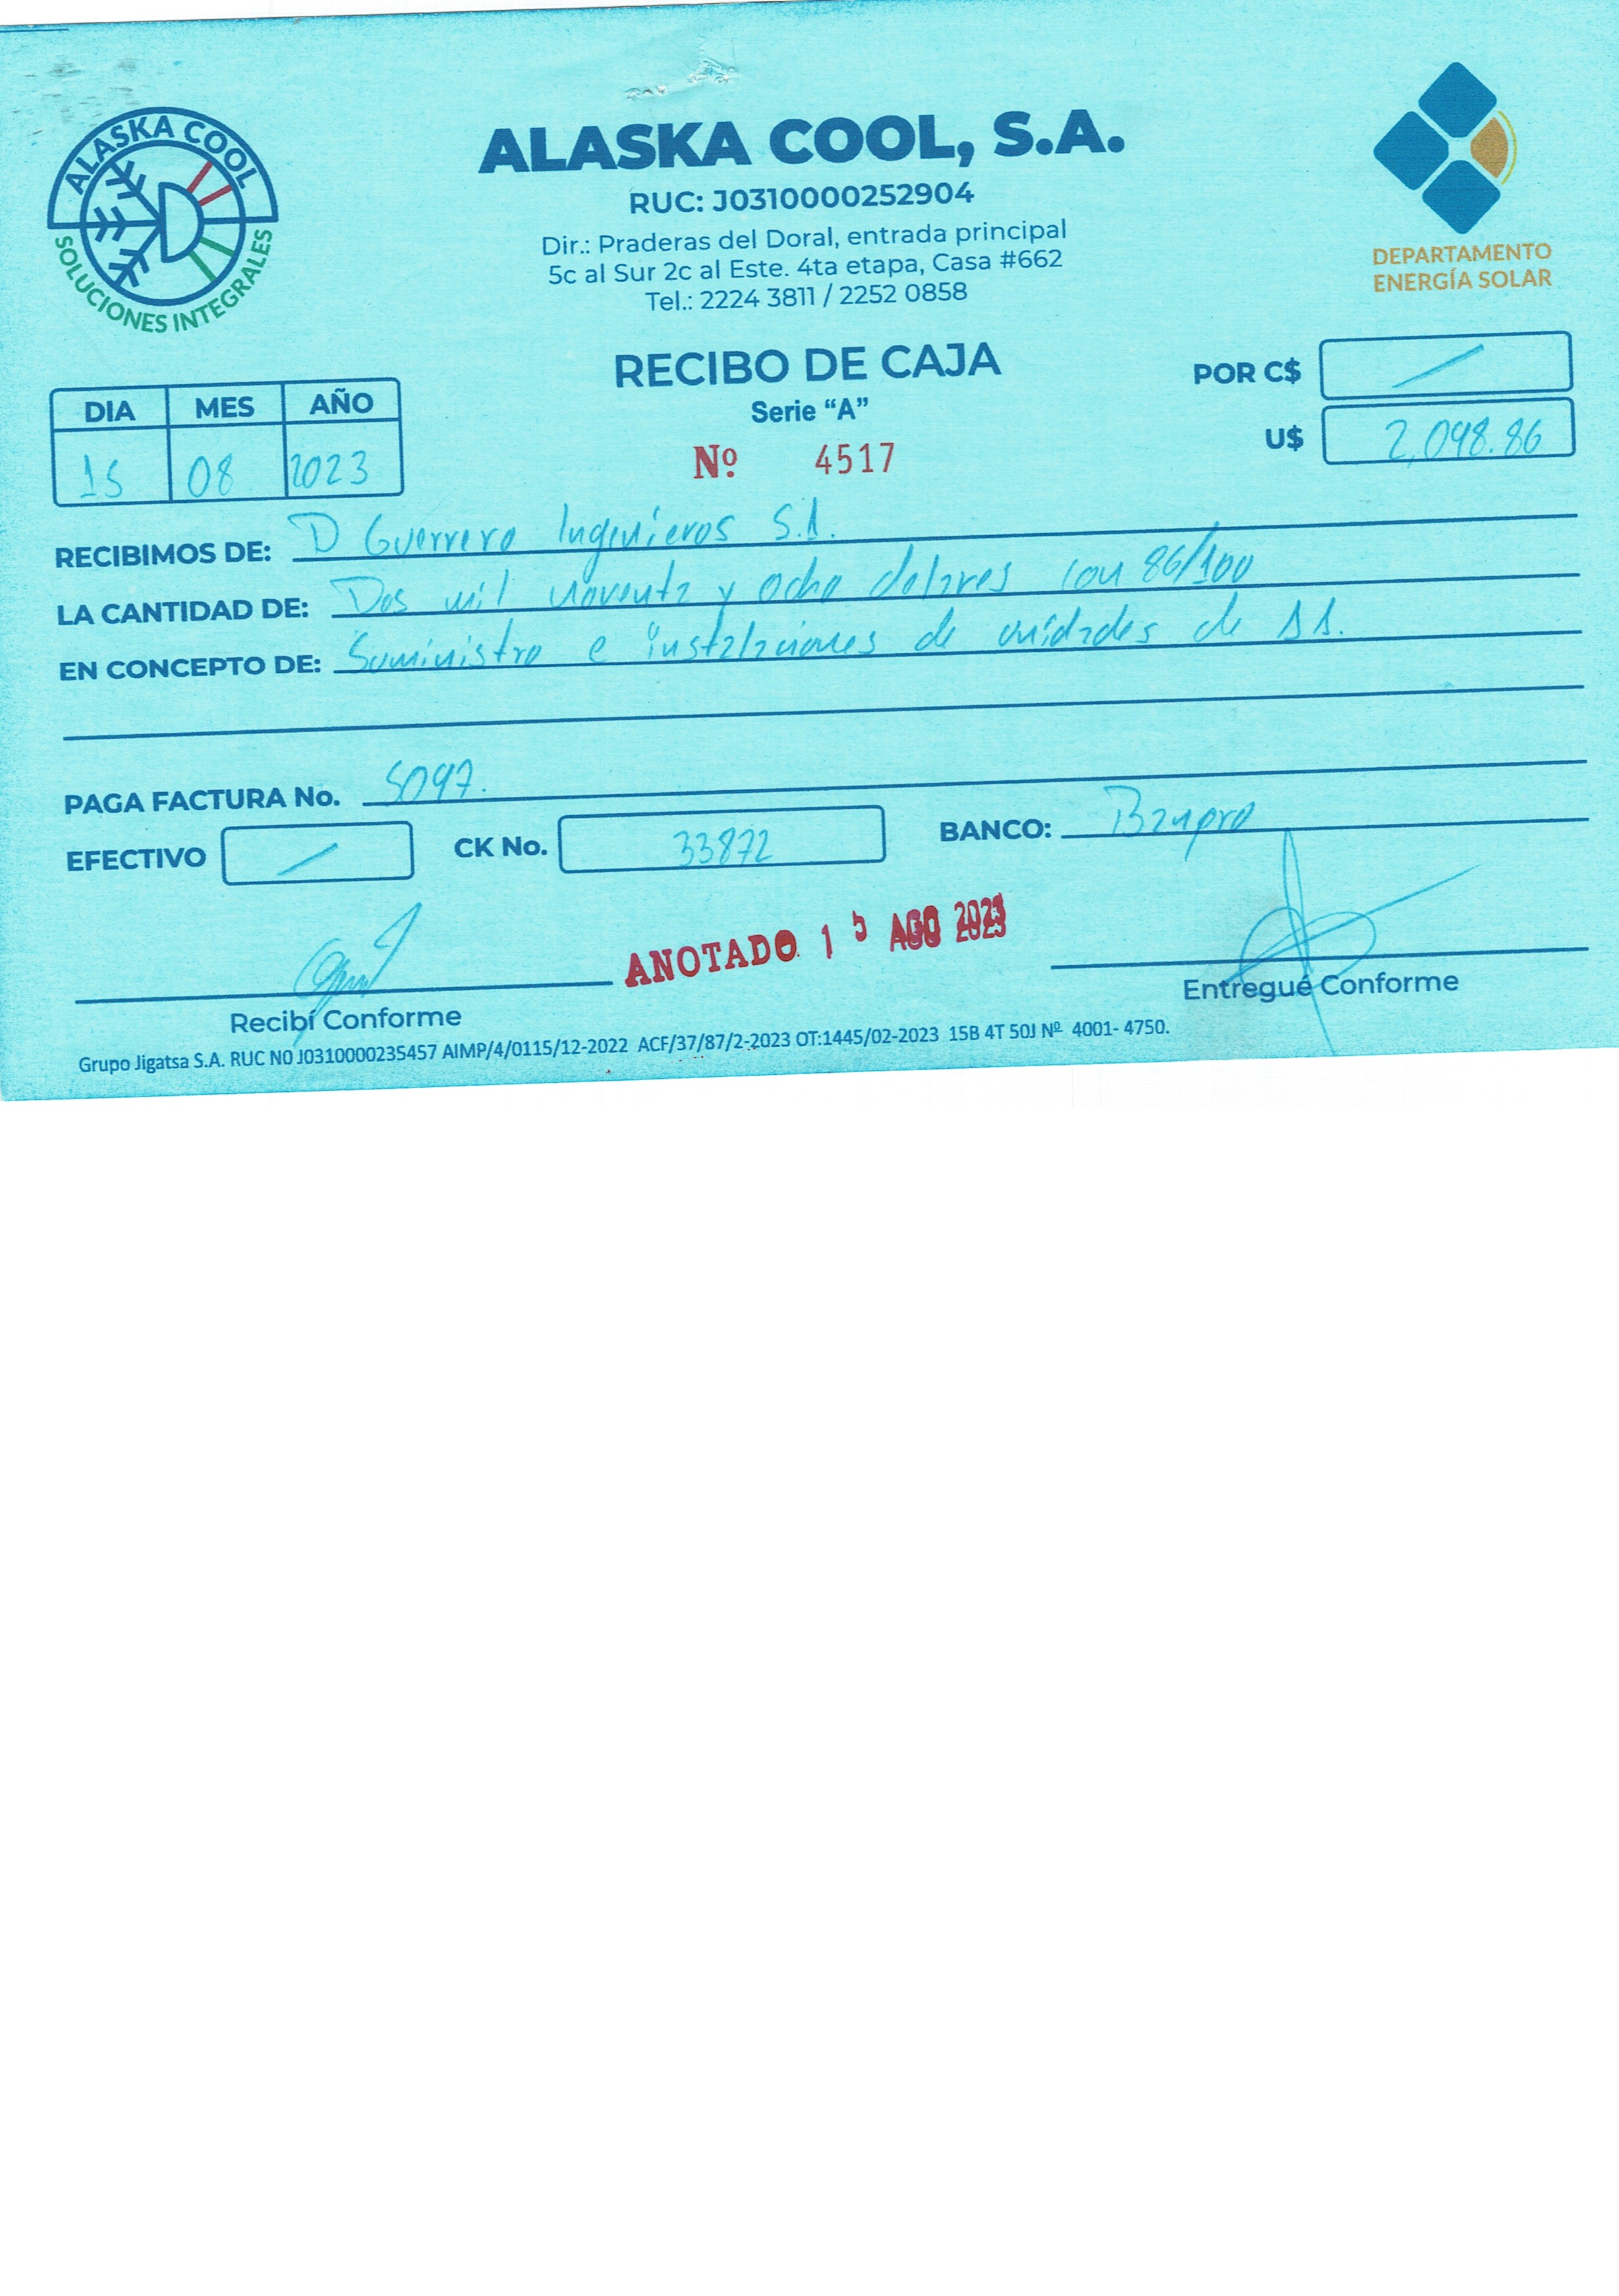 ALASKA COOL
SOLUCIONES INTEGRALES
ALASKA COOL, S.A.
RUC: J0310000252904
Dir.: Praderas del Doral, entrada principal
5c al Sur 2c al Este. 4ta etapa, Casa #662
Tel.: 2224 3811 / 2252 0858
DEPARTAMENTO
ENERGÍA SOLAR
RECIBO DE CAJA
Serie "A"
Nº 4517
POR C$
U$ 2,098.86
DIA MES AÑO
15 08 2023
RECIBIMOS DE: D Guerrero Ingenieros S.A.
LA CANTIDAD DE: Dos mil noventa y ocho dolares con 86/100
EN CONCEPTO DE: Suministro e instalaciones de unidades de AA.
PAGA FACTURA No. 5097.
EFECTIVO CK No. 33872 BANCO: Banpro
ANOTADO 15 AGO 2023
Recibí Conforme Entregué Conforme
Grupo Jigatsa S.A. RUC N0 J0310000235457 AIMP/4/0115/12-2022 ACF/37/87/2-2023 OT:1445/02-2023 15B 4T 50J Nº 4001- 4750.